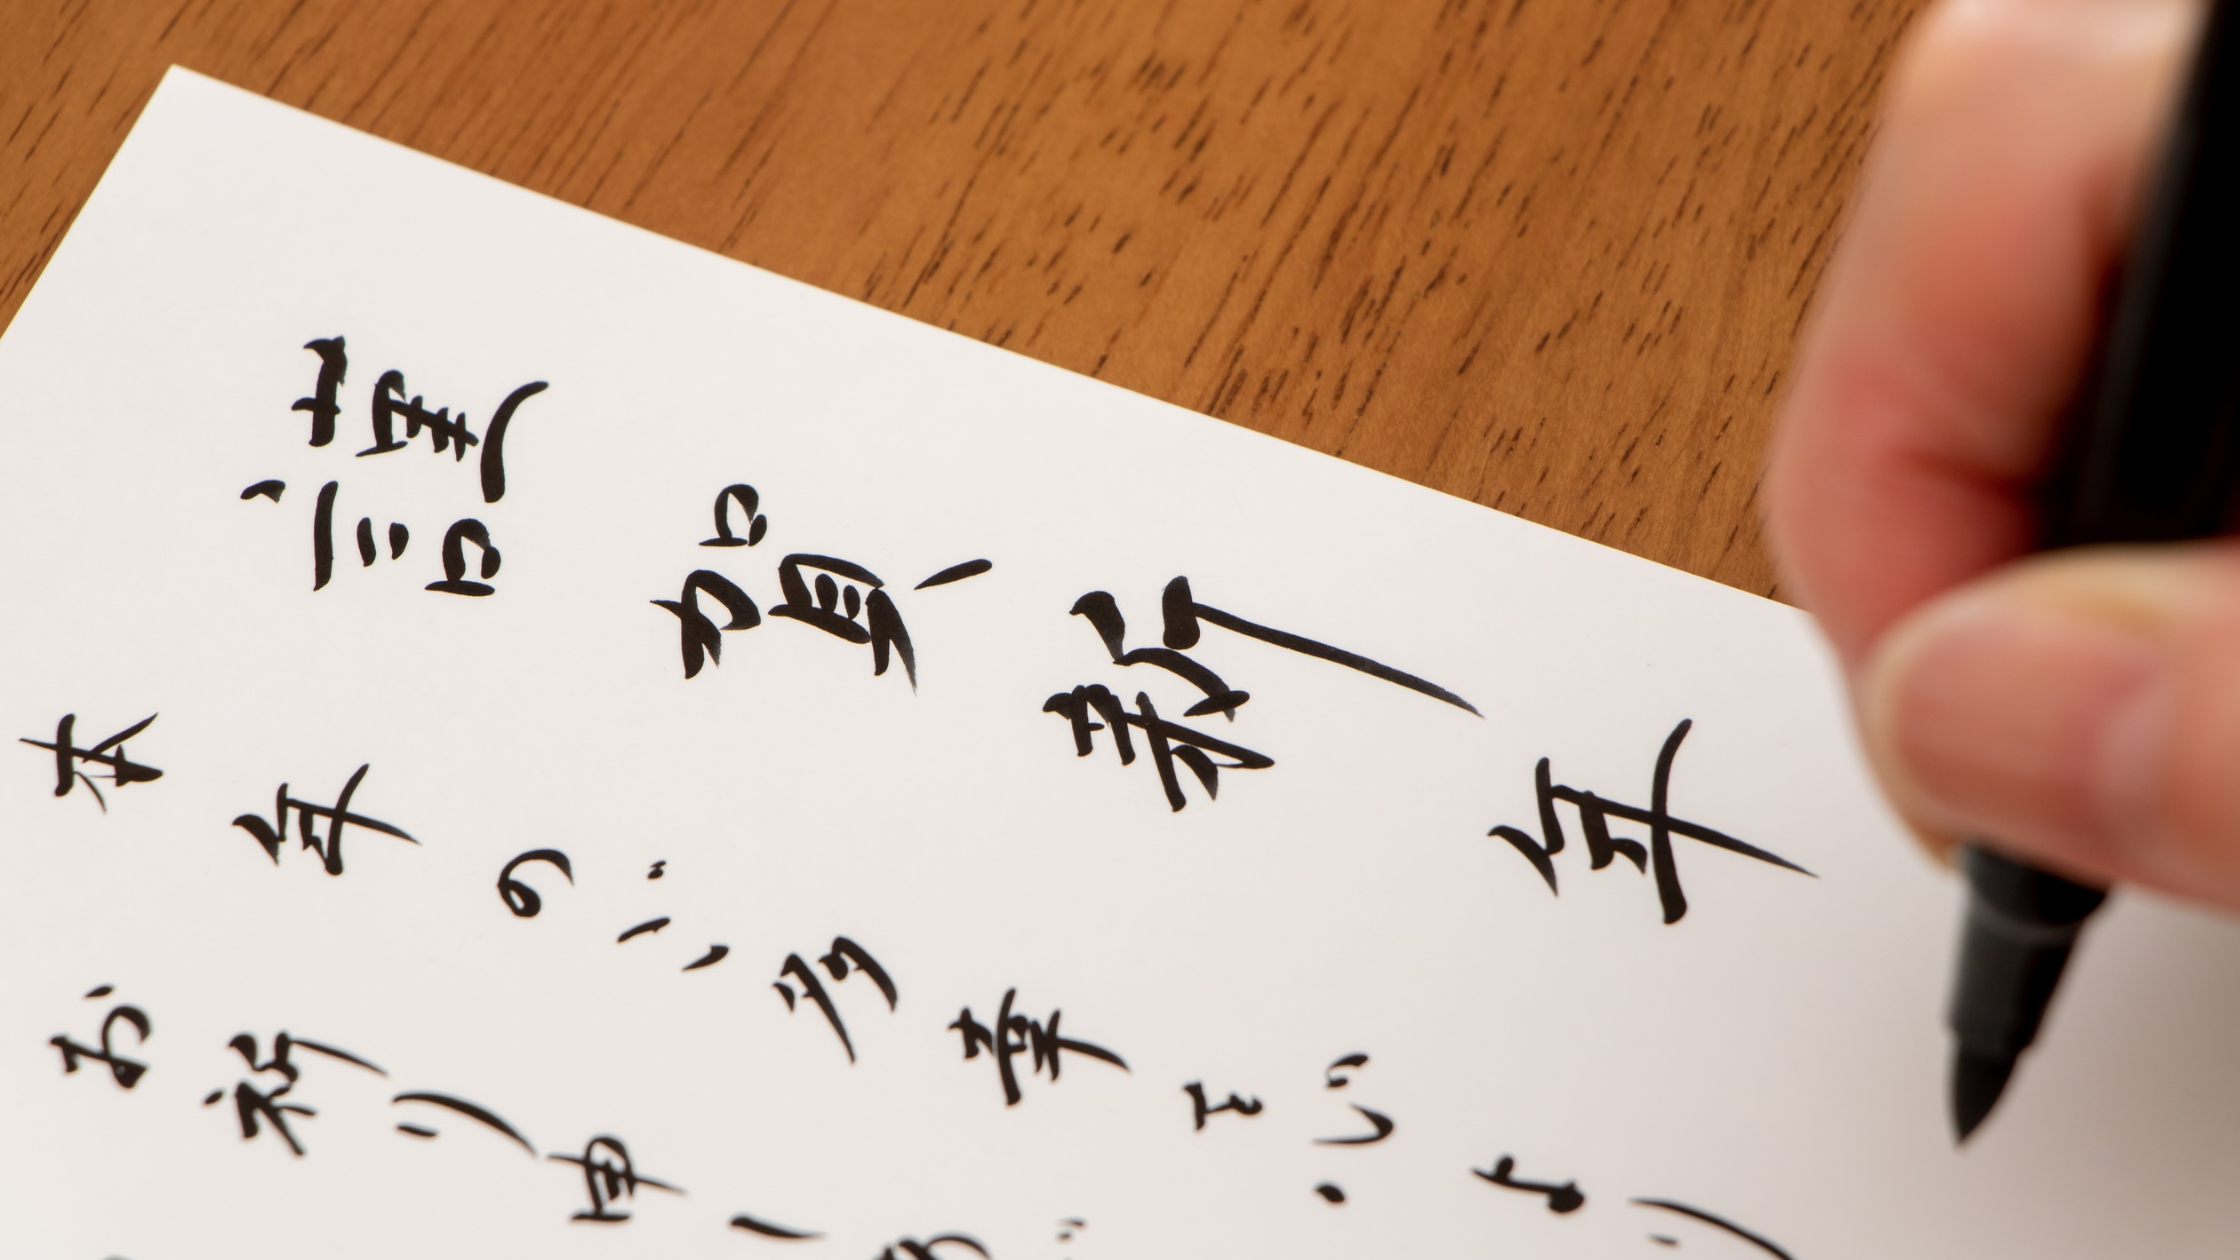 謹賀新年
本年のご多幸を心より
お祈り申し